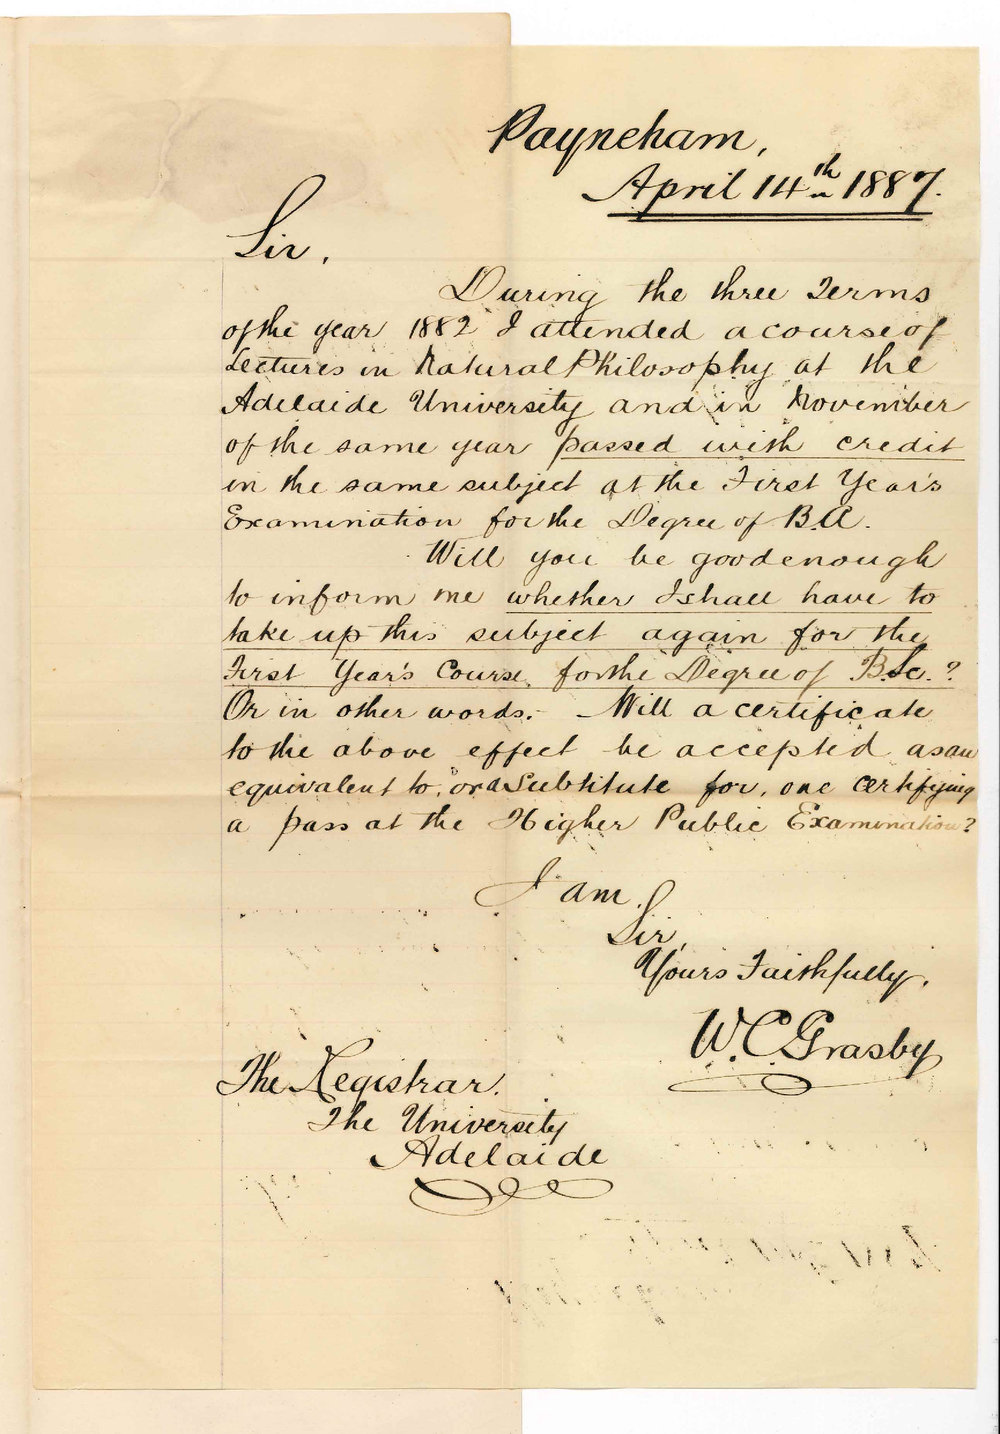 Payneham,
April 14th 1887.
Sir,
During the three Terms
of the year 1882 I attended a course of
Lectures in Natural Philosophy at the
Adelaide University and in November
of the same year passed with credit
in the same subject at the First Year's
Examination for the Degree of B.A.
Will you be good enough
to inform me whether I shall have to
take up this subject again for the
First Year's Course for the Degree of B.Sc.?
Or in other words:- Will a certificate
to the above effect be accepted as an
equivalent to, or a Substitute for, one certifying
a pass at the Higher Public Examination?
I am,
Sir,
Yours Faithfully,
W. C. Grasby
The Registrar.
The University
Adelaide